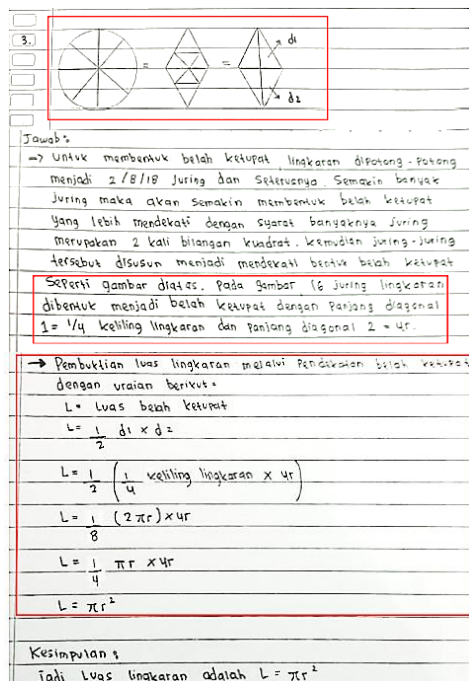 3.
d1
d2
Jawab :
→ Untuk membentuk belah ketupat lingkaran dipotong-potong
menjadi 2/8/18 juring dan seterusnya. Semakin banyak
juring maka akan semakin membentuk belah ketupat
yang lebih mendekati dengan syarat banyaknya juring
merupakan 2 kali bilangan kuadrat. Kemudian juring-juring
tersebut disusun menjadi mendekati bentuk belah ketupat
Seperti gambar diatas. Pada gambar 16 juring lingkaran
dibentuk menjadi belah ketupat dengan panjang diagonal
1 = 1/4 keliling lingkaran dan panjang diagonal 2 = 4r.
→ Pembuktian luas lingkaran melalui pendekatan belah ketupat
dengan uraian berikut :
L = Luas belah ketupat
L = 1/2 d1 x d2
L = 1/2 (1/4 keliling lingkaran x 4r)
L = 1/8 (2πr) x 4r
L = 1/4 πr x 4r
L = πr²
Kesimpulan :
Jadi Luas lingkaran adalah L = πr²